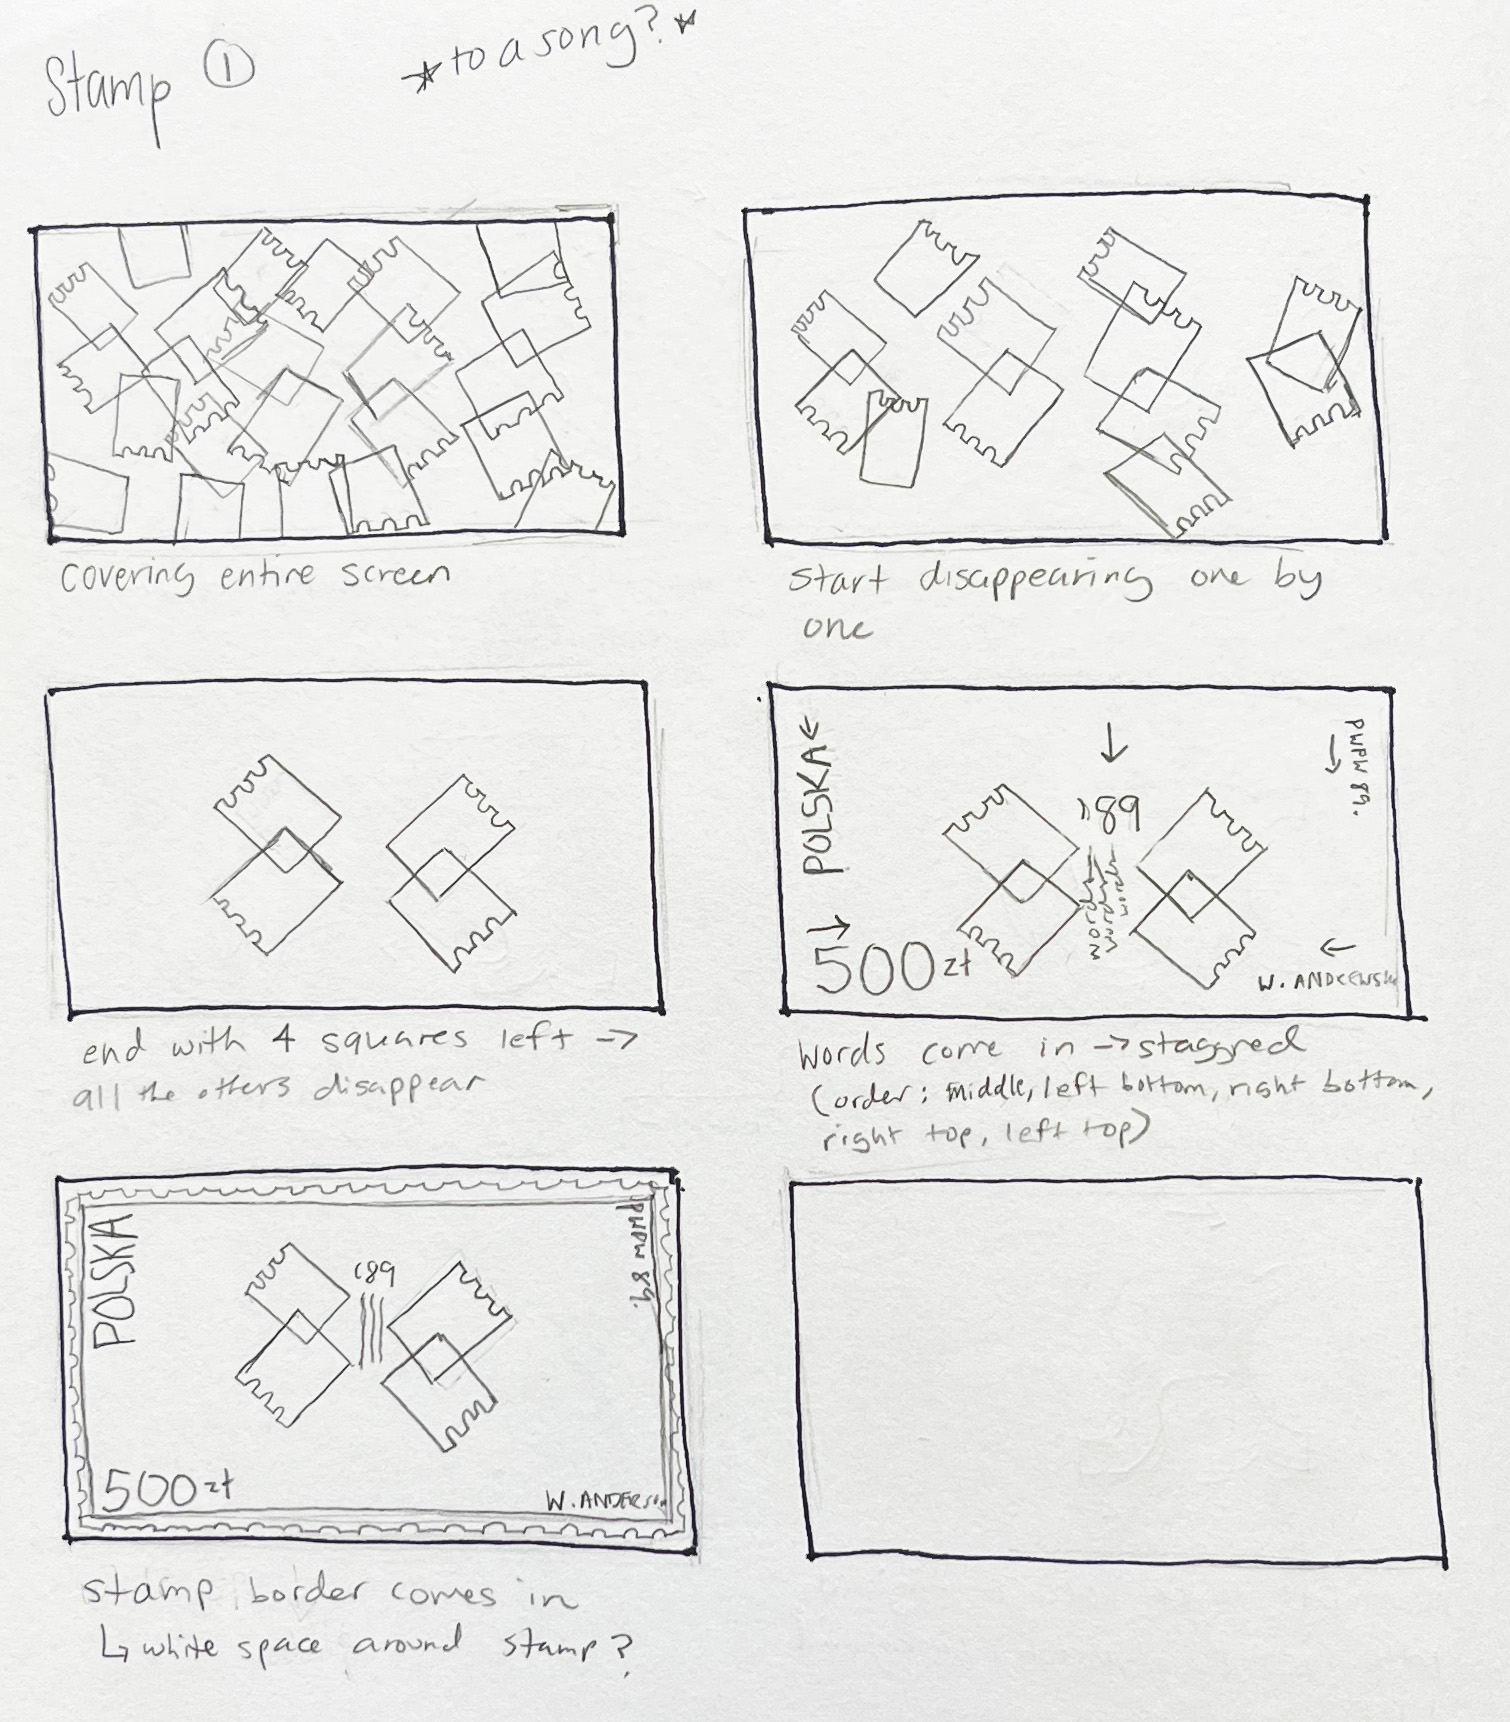 Stamp ①
*to a song?*
covering entire screen
start disappearing one by
one
end with 4 squares left →
all the others disappear
POLSKA
'89
words
words
words
PWPW 89.
500 zł
W. ANDREWSKI
words come in → staggred
(order: middle, left bottom, right bottom,
right top, left top)
POLSKA
'89
PWPW 89.
500 zł
W. ANDERSON
stamp border comes in
↳ white space around stamp?